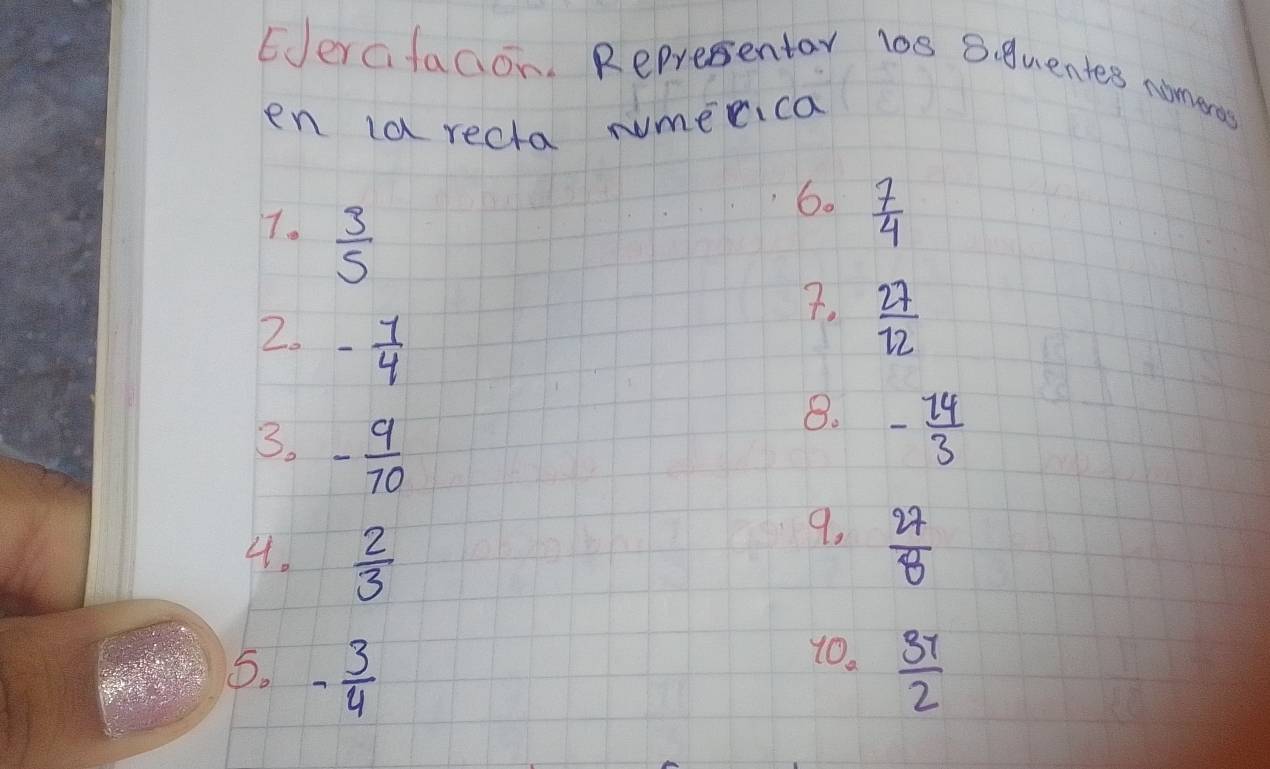 Ejercitación. Representar los siguientes números
en la recta numérica
1. 3/5
2. - 1/4
3. - 9/10
4. 2/3
5. - 3/4
6. 7/4
7. 27/12
8. - 14/3
9. 27/8
10. 31/2